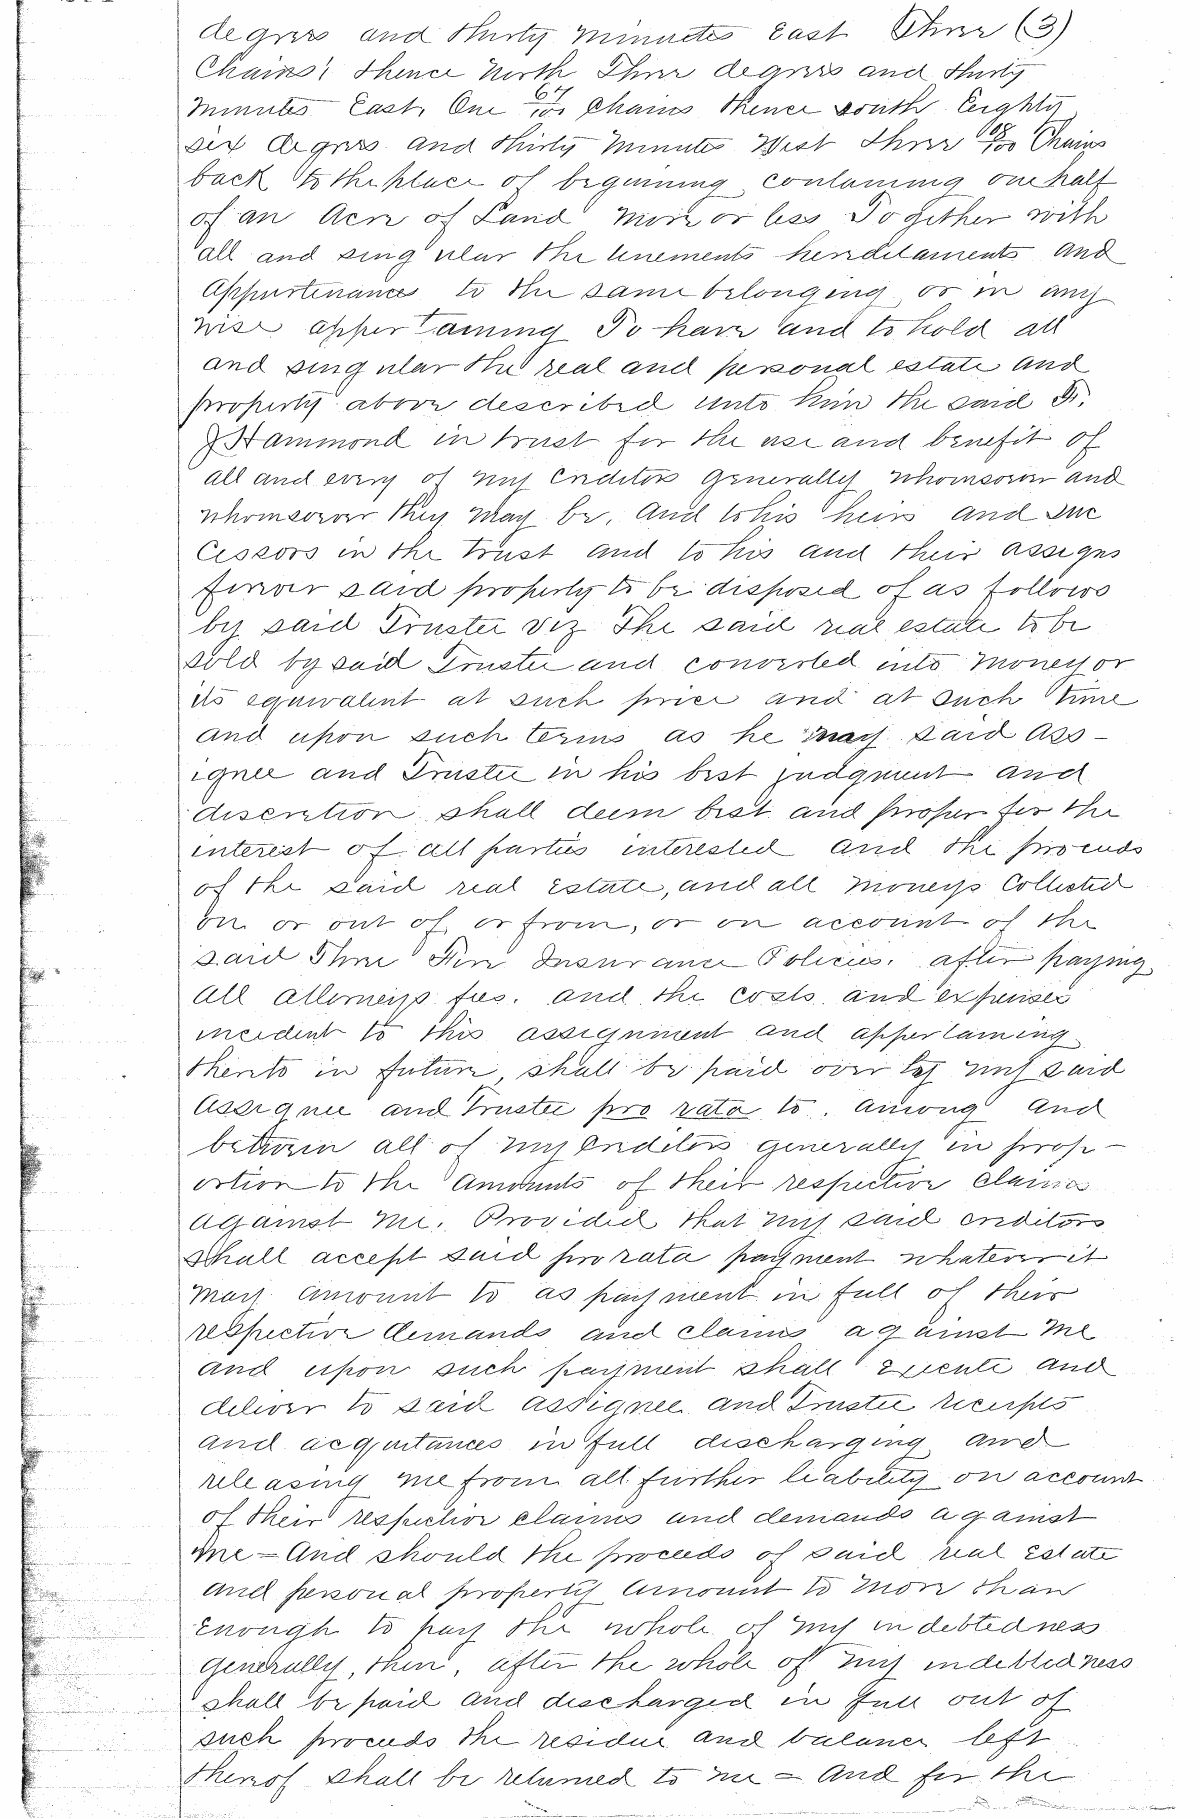 degrees and thirty minutes East Three (3)
Chains; thence North Three degrees and thirty
minutes East, One 67/100 Chains thence south Eighty
six degrees and thirty minutes West Three 08/100 Chains
back to the place of beginning containing one half
of an Acre of Land more or less Together with
all and singular the tenements hereditaments and
Appurtenances to the same belonging or in any
wise appertaining To have and to hold all
and singular the real and personal estate and
property above described unto him the said
Hammond in trust for the use and benefit of
all and every of my Creditors generally whomsoever and
whomsoever they may be. And to his heirs and suc
cessors in the trust and to his and their assigns
forever said property to be disposed of as follows
by said Trustee viz The said real estate to be
sold by said Trustee and converted into money or
its equivalent at such price and at such time
and upon such terms as he may said Ass-
ignee and Trustee in his best judgment and
discretion shall deem best and proper for the
interest of all parties interested and the proceeds
of the said real estate, and all moneys Collected
on or out of, or from, or on account of the
said Three Fire Insurance Policies. after paying
all attorneys fees. and the costs and expenses
incident to this assignment and appertaining
thereto in future, shall be paid over by my said
Assignee and Trustee pro rata to. among and
between all of my Creditors generally in prop-
ortion to the amounts of their respective claims
against me. Provided that my said creditors
shall accept said pro rata payment whatever it
may amount to as payment in full of their
respective demands and claims against me
and upon such payment shall execute and
deliver to said assignee and Trustee receipts
and acquitances in full discharging and
releasing me from all further liability on account
of their respective claims and demands against
me = And should the proceeds of said real estate
and personal property amount to more than
enough to pay the whole of my indebtedness
generally, then, after the whole of my indebtedness
shall be paid and discharged in full out of
such proceeds the residue and balance left
thereof shall be returned to me = And for the